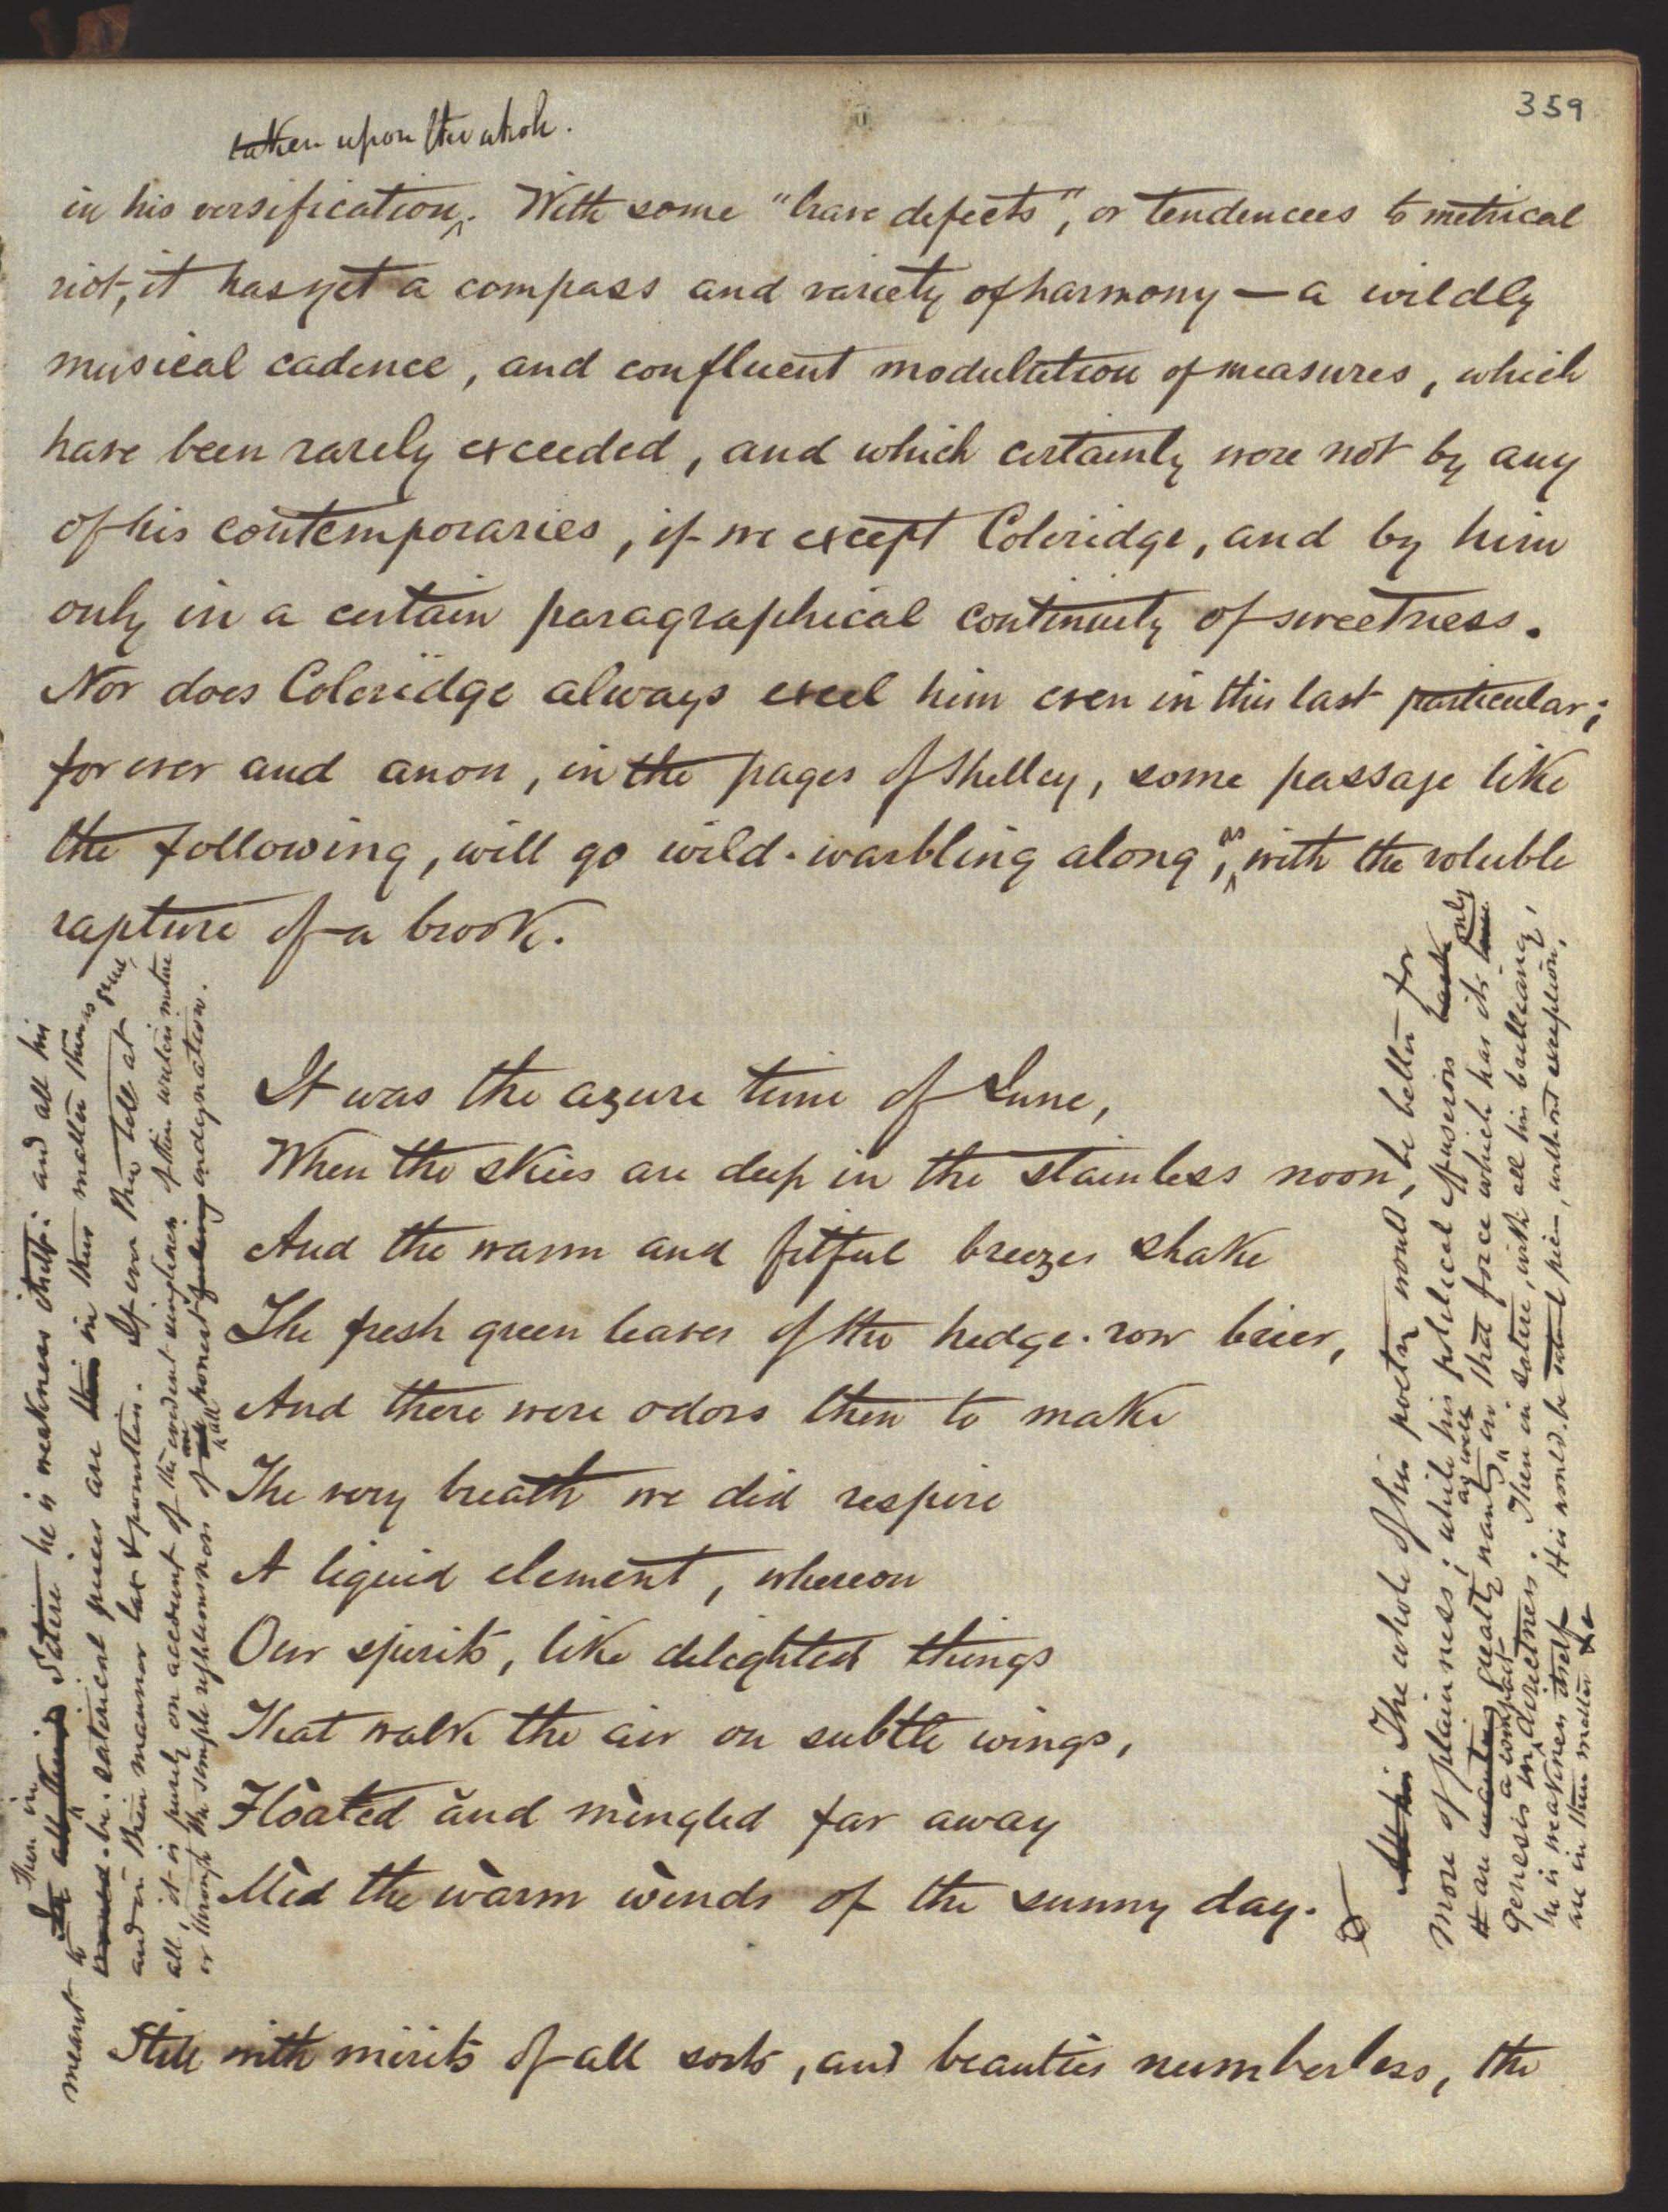 359
taken upon the whole.
in his versification. With some "brave defects", or tendencies to metrical
riot, it has yet a compass and variety of harmony — a wildly
musical cadence, and confluent modulation of measures, which
have been rarely exceeded, and which certainly were not by any
of his contemporaries, if we except Coleridge, and by him
only in a certain paragraphical continuity of sweetness.
Nor does Coleridge always excel him even in this last particular;
for ever and anon, in the pages of Shelley, some passage like
the following, will go wild-warbling along, as with the voluble
rapture of a brook.
It was the azure time of June,
When the skies are deep in the stainless noon,
And the warm and fitful breezes shake
The fresh green leaves of the hedge-row brier,
And there were odors then to make
The very breath we did respire
A liquid element, whereon
Our spirits, like delighted things
That walk the air on subtle wings,
Floated and mingled far away
Mid the warm winds of the sunny day.
Still with merits of all sorts, and beauties numberless, the
The whole of his poetry would be better for
more of plainness; while his political effusions
are greatly wanting as well in that force which has its only
genesis in a compact directness. Then in satire, with all his brilliancy,
he is weakness itself. His would-be satirical pieces, without exception,
are in this matter &c
meant to be
Then in Satire he is weakness itself: and all his
would-be satirical pieces are in this matter thin
and in their manner lax & pointless. If ever they tell at
all, it is purely on account of the evident simpleness of their writer's nature
or through the simple righteousness of all honest indignation.